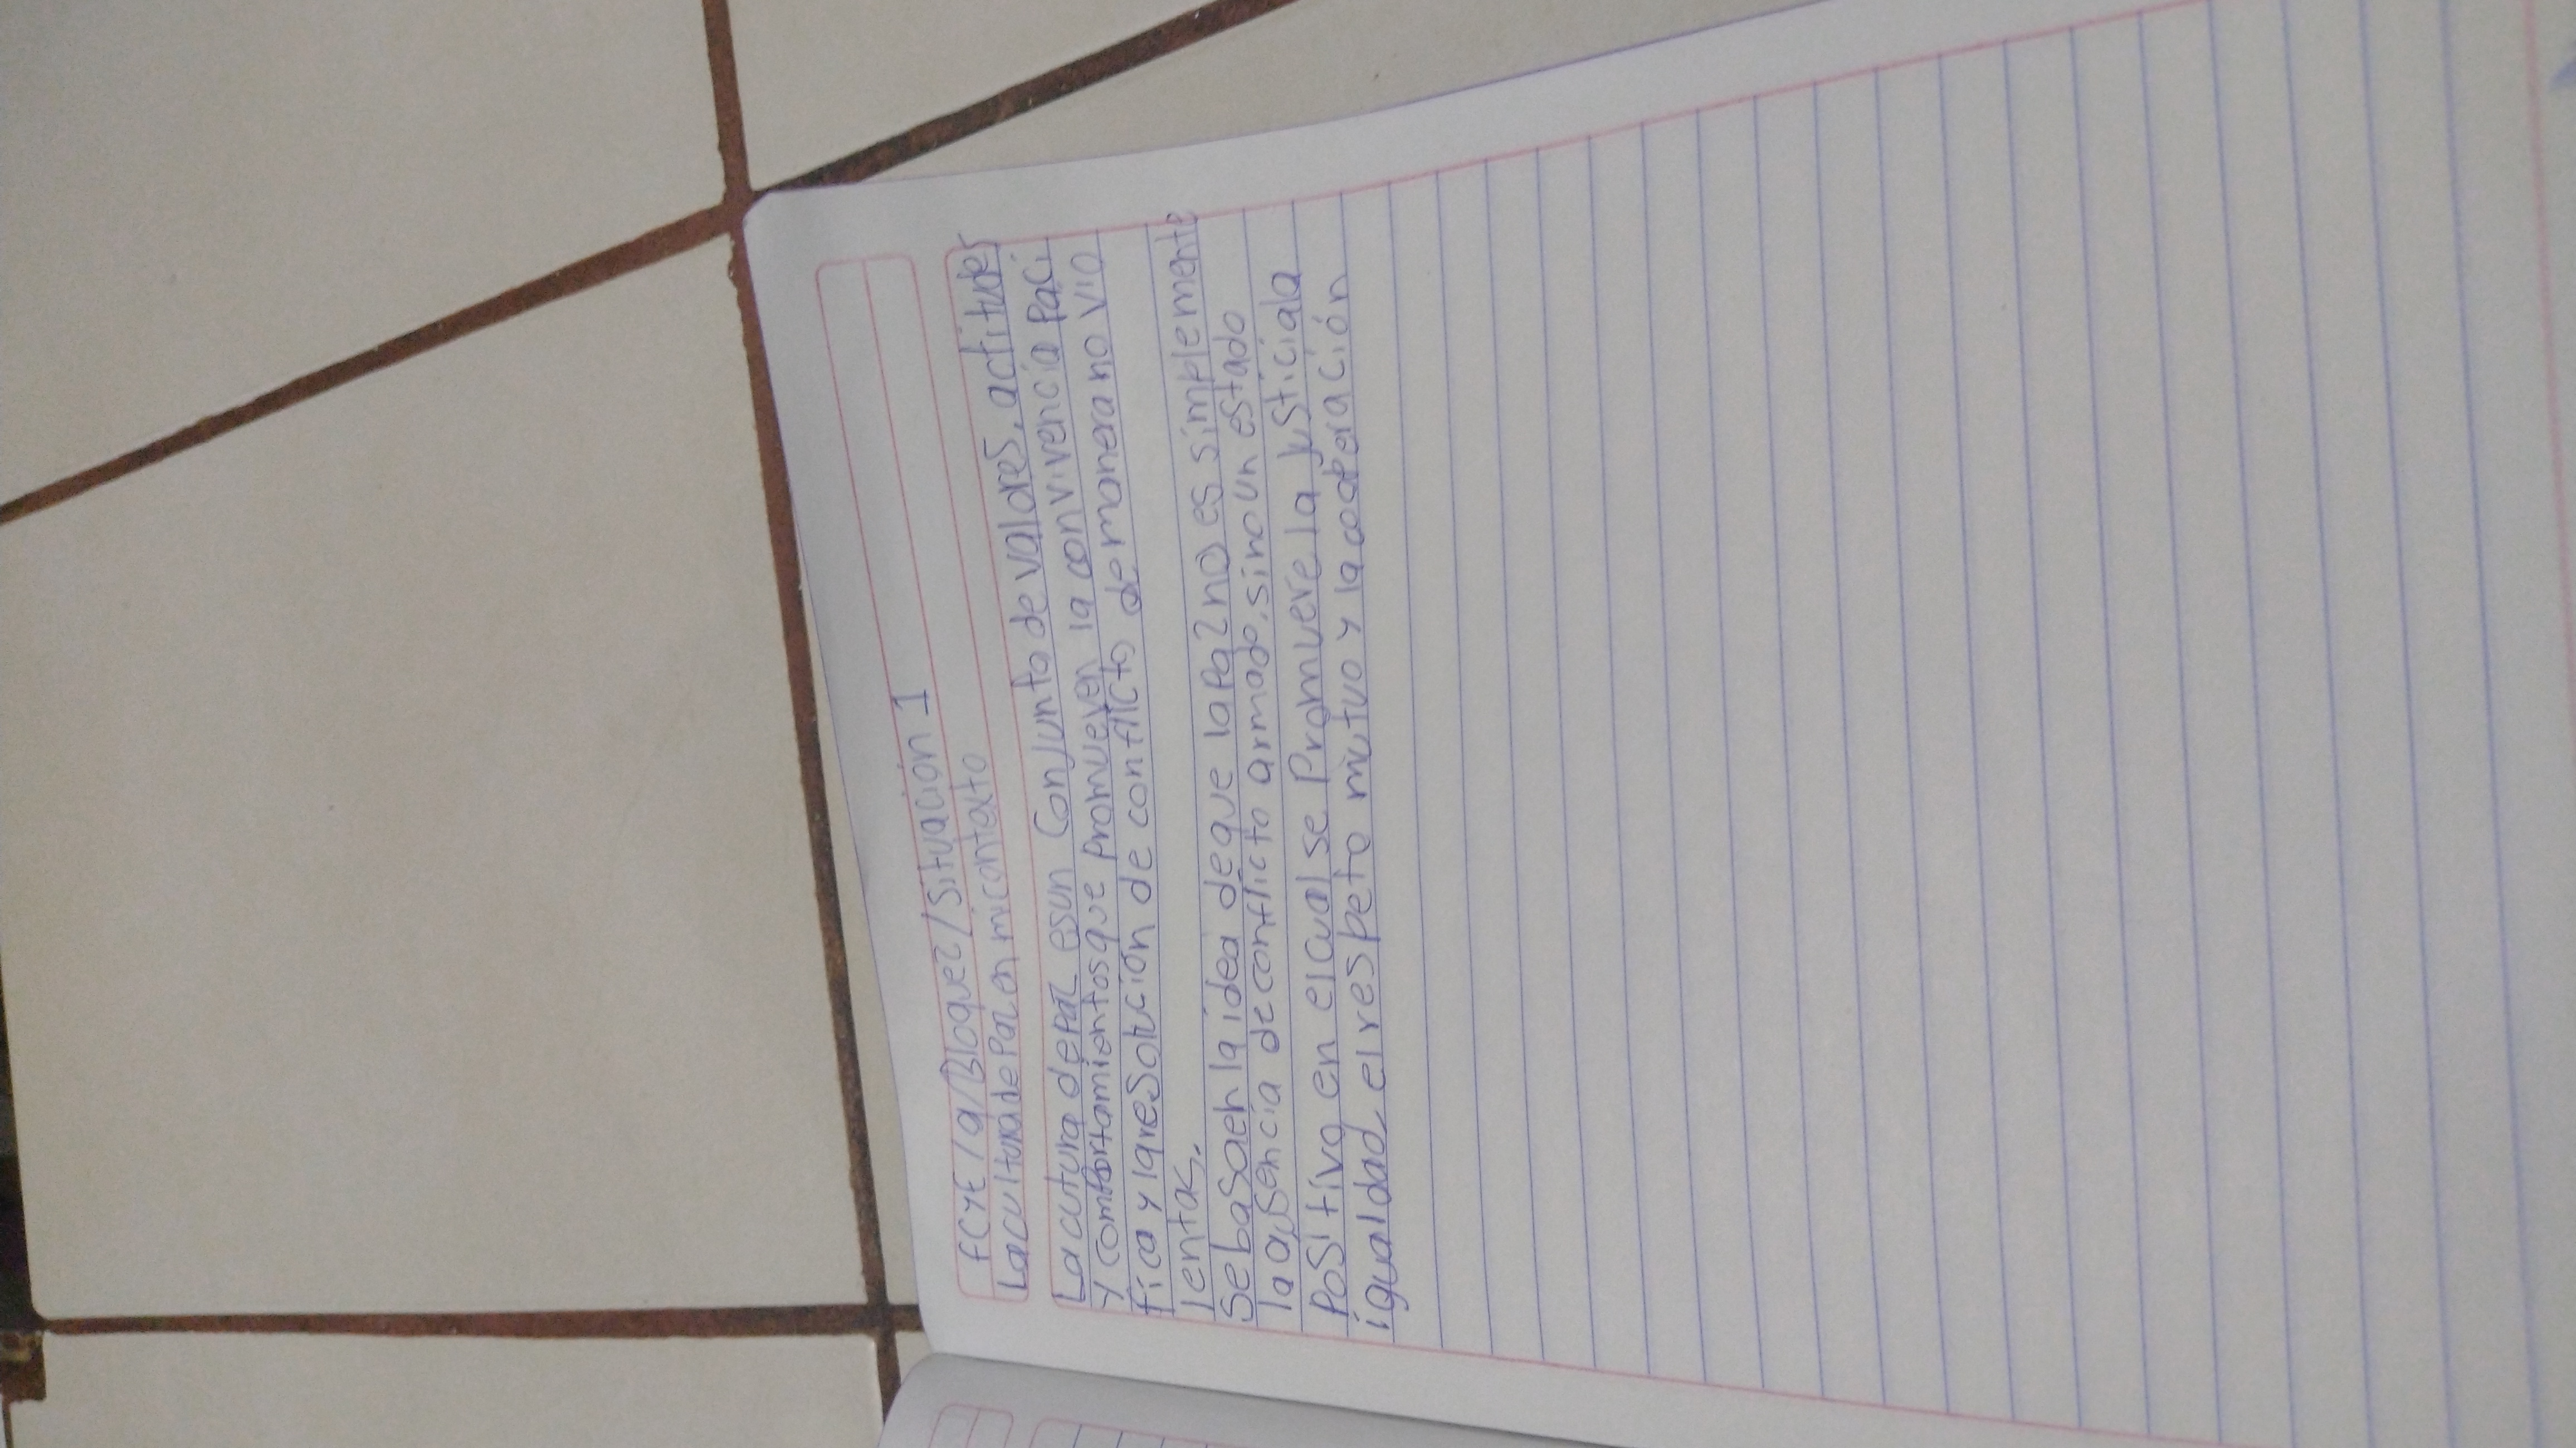 FCYE / a / Bloque 2 / Situación 1
La cultura de Paz en mi contexto
La cutura de Paz es un Conjunto de valores, actitudes
y comportamientos que promueven la convivencia Paci
fica y la resolución de conflicto de manera no vio
lentas.
Se basa en la idea de que la Paz no es simplemente
la ausencia de conflicto armado, sino un estado
Positivo en el cual se Promueve la justicia la
igualdad el respeto mutuo y la cooperación